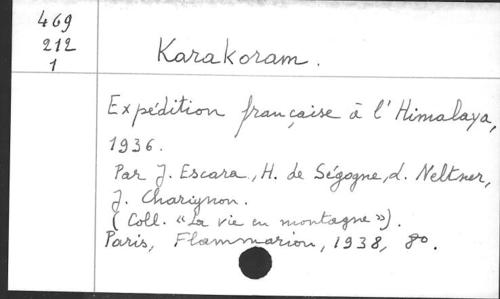 469
212
1
Karakoram.
Expédition française à l'Himalaya,
1936.
Par J. Escara, H. de Ségogne, L. Neltner,
J. Charignon.
(Coll. «La vie en montagne»).
Paris, Flammarion, 1938, 8º.